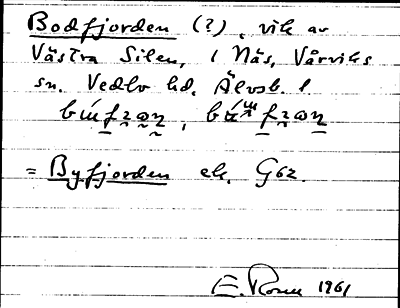 Bodfjorden (?), vik av
Västra Silen, i Näs, Vårviks
sn. Vedbo hd. Älvsb. l.
= Byfjorden ek. G62.
E. Rosen 1961